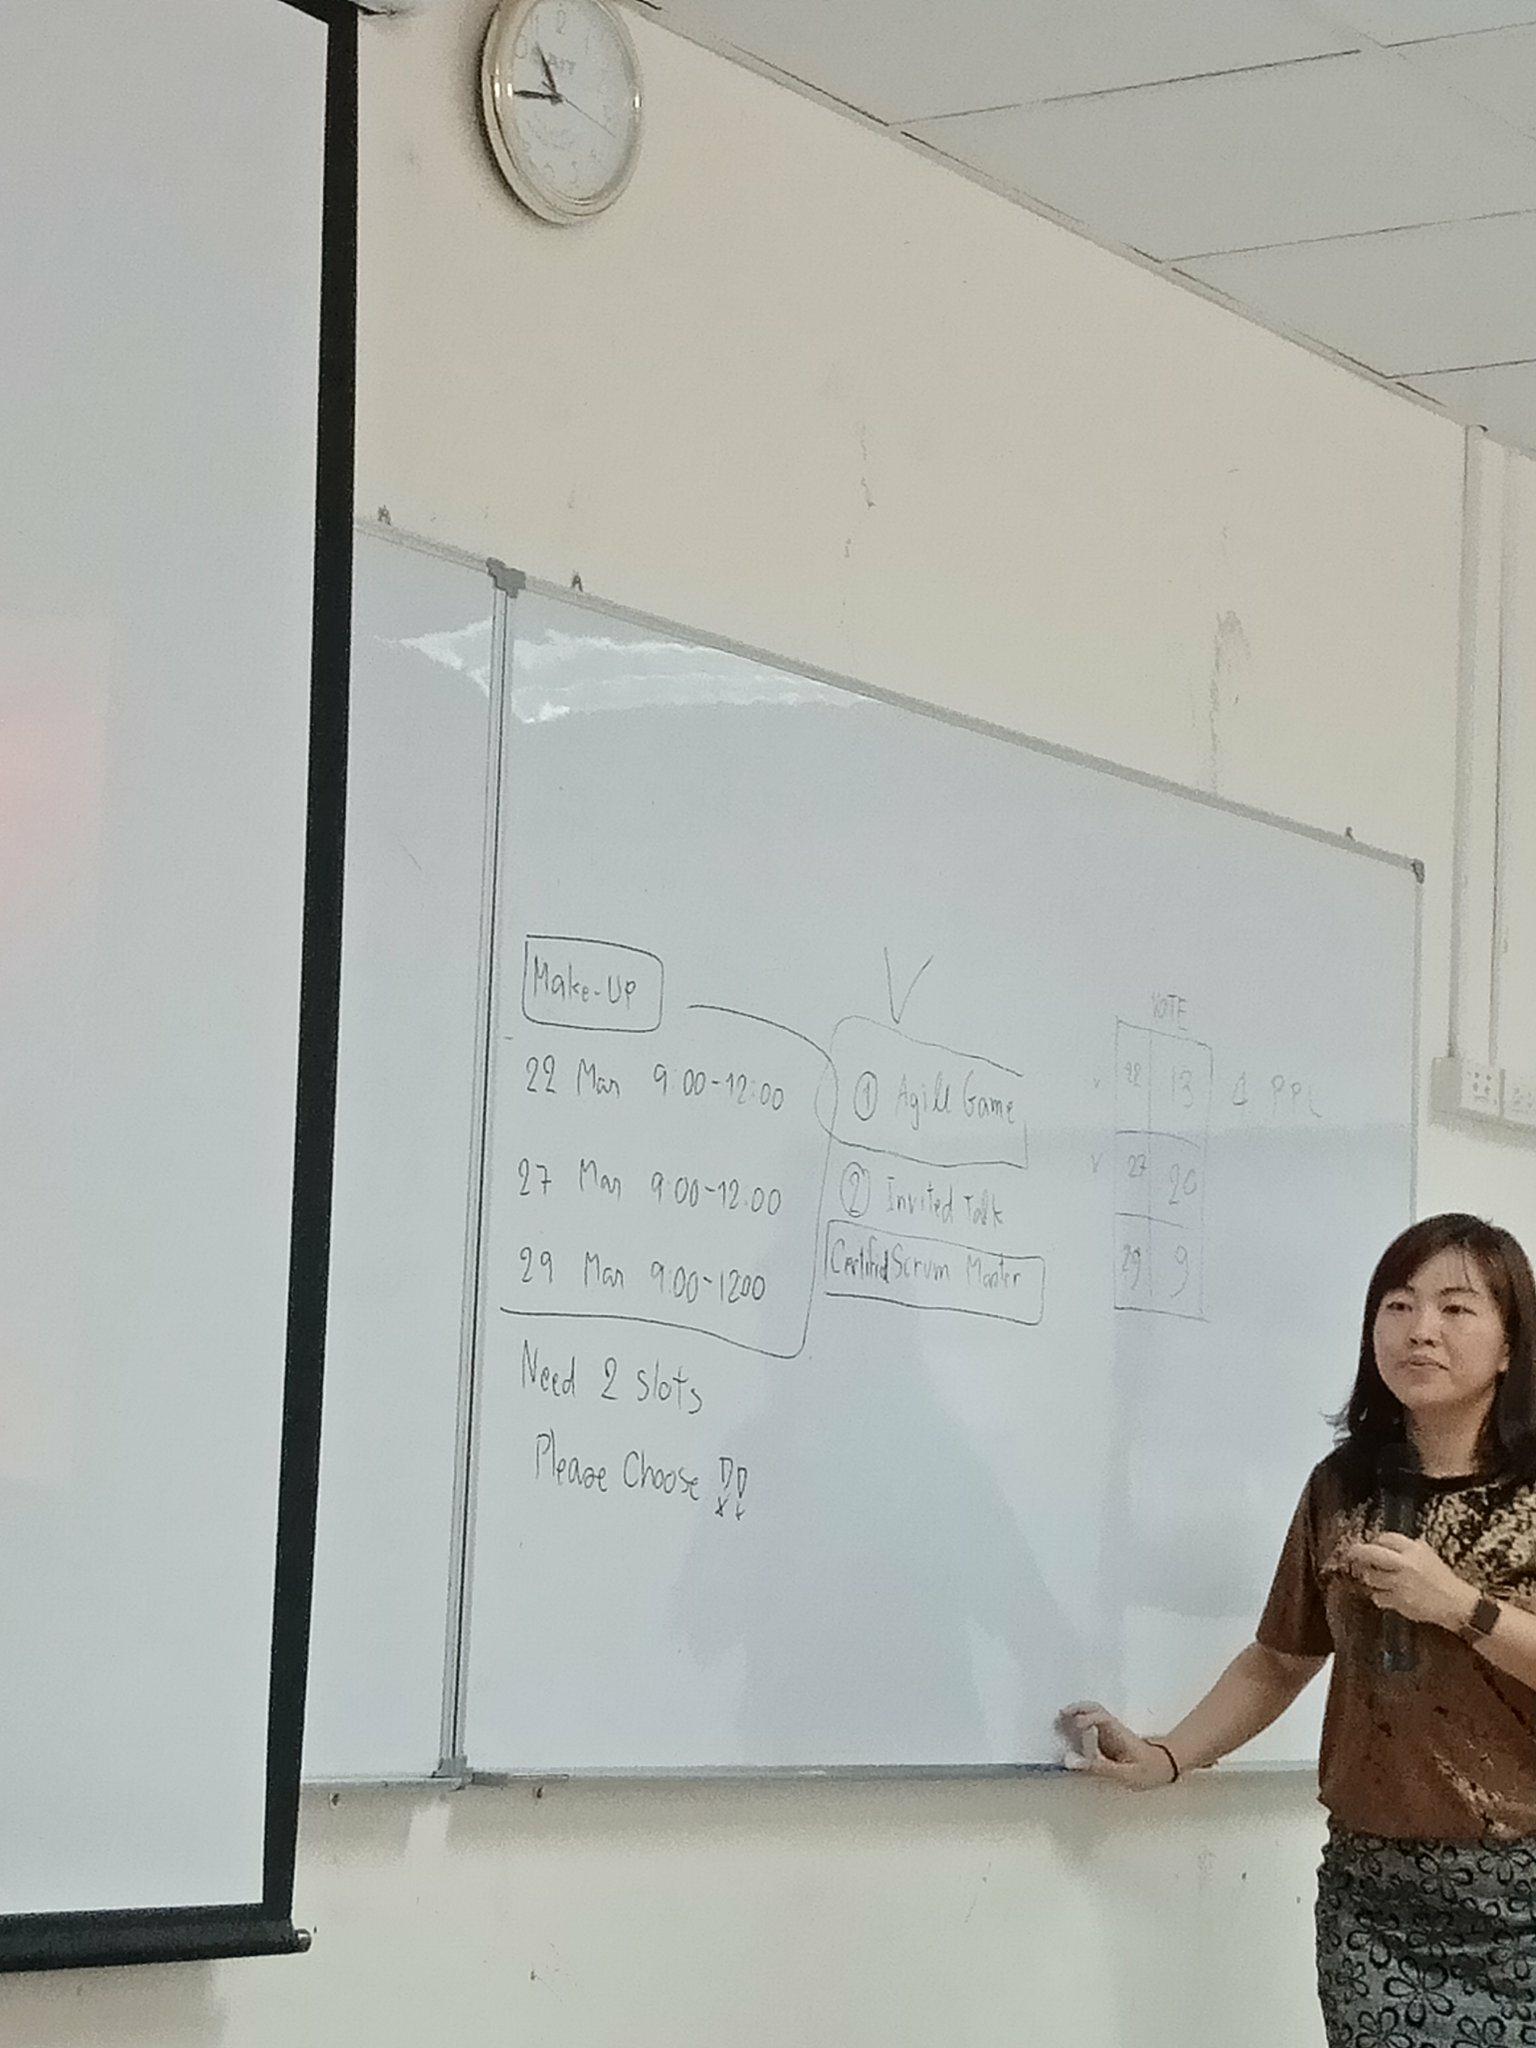 Make-Up
22 Mar 9:00-12:00
27 Mar 9:00-12:00
29 Mar 9:00-1200
Need 2 slots
Please Choose !!
V
① Agile Game
② Invited Talk
Certified Scrum Master
VOTE
v 22 13 1 PPL
v 27 20
29 9